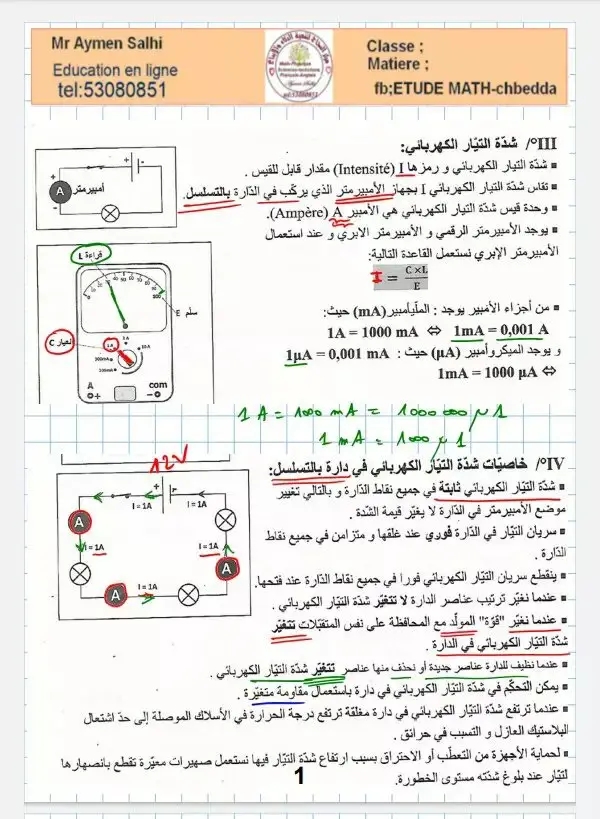 Mr Aymen Salhi
Education en ligne
tel:53080851
Classe ;
Matiere ;
fb;ETUDE MATH-chbedda
III°/ شدّة التيّار الكهربائي:
▪ شدّة التيار الكهربائي و رمزها I (Intensité) مقدار قابل للقيس .
▪ تقاس شدّة التيار الكهربائي I بجهاز الأمبيرمتر الذي يركّب في الدّارة بالتسلسل.
▪ وحدة قيس شدّة التيار الكهربائي هي الأمبير A (Ampère).
▪ يوجد الأمبيرمتر الرقمي و الأمبيرمتر الابري و عند استعمال
الأمبيرمتر الإبري نستعمل القاعدة التالية:
I = C×L / E
▪ من أجزاء الأمبير يوجد : الملّيأمبير(mA) حيث:
1A = 1000 mA ⇔ 1mA = 0,001 A
و يوجد الميكروأمبير (µA) حيث : 1µA = 0,001 mA
⇔ 1mA = 1000 µA
+
-
A
أمبيرمتر
قراءة L
سلّم E
العيار C
1A
3A
10A
300mA
100mA
A
com
+
-
1 A = 1000 mA = 1000 000 µ A
1 mA = 1000 µ A
IV°/ خاصيّات شدّة التيّار الكهربائي في دارة بالتسلسل:
▪ شدّة التيّار الكهربائي ثابتة في جميع نقاط الدّارة و بالتالي تغيير
موضع الأمبيرمتر في الدّارة لا يغيّر قيمة الشدّة .
▪ سريان التيّار في الدّارة فوري عند غلقها و متزامن في جميع نقاط
الدّارة .
▪ ينقطع سريان التيّار الكهربائي فورا في جميع نقاط الدّارة عند فتحها.
▪ عندما نغيّر ترتيب عناصر الدارة لا تتغيّر شدّة التيّار الكهربائي .
▪ عندما نغيّر "قوّة" المولّد مع المحافظة على نفس المتقبّلات تتغيّر
شدّة التيّار الكهربائي في الدارة .
▪ عندما نظيف للدارة عناصر جديدة أو نحذف منها عناصر تتغيّر شدّة التيّار الكهربائي .
▪ يمكن التحكّم في شدّة التيّار الكهربائي في دارة باستعمال مقاومة متغيّرة .
▪ عندما ترتفع شدّة التيّار الكهربائي في دارة مغلقة ترتفع درجة الحرارة في الأسلاك الموصلة إلى حدّ اشتعال
البلاستيك العازل و التسبب في حرائق .
▪ لحماية الأجهزة من التعطّب أو الاحتراق بسبب ارتفاع شدّة التيّار فيها نستعمل صهيرات معيّرة تقطع بانصهارها
لتيّار عند بلوغ شدّته مستوى الخطورة.
12V
+
-
I = 1A
I = 1A
A
I = 1A
I = 1A
A
I = 1A
A
1